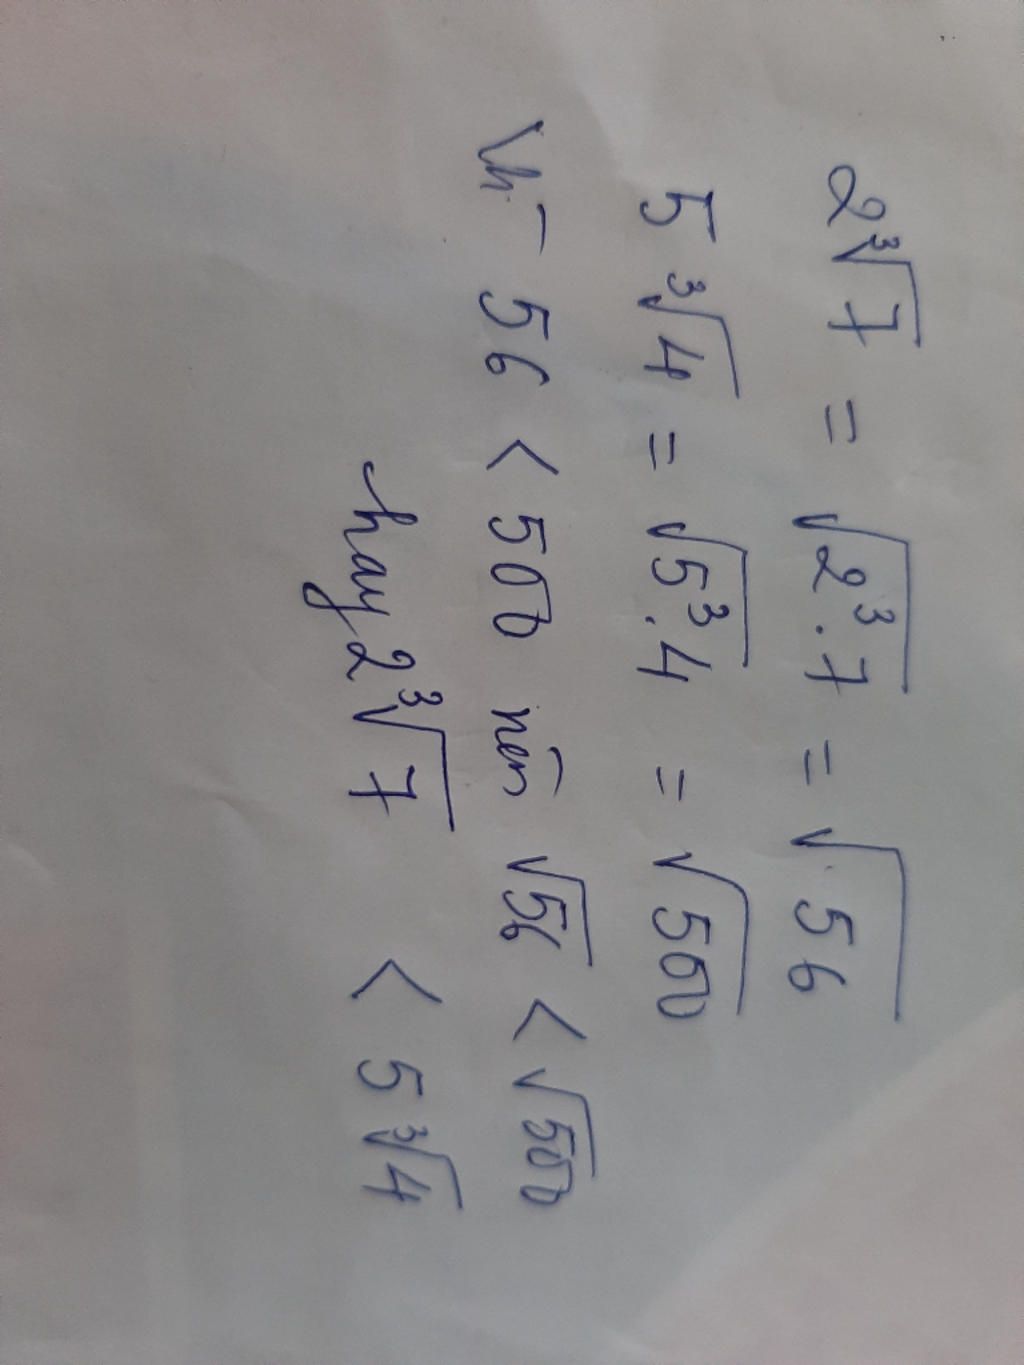 2∛7 = √2³.7 = √56
5∛4 = √5³.4 = √500
Vì 56 < 500 nên √56 < √500
hay 2∛7 < 5∛4